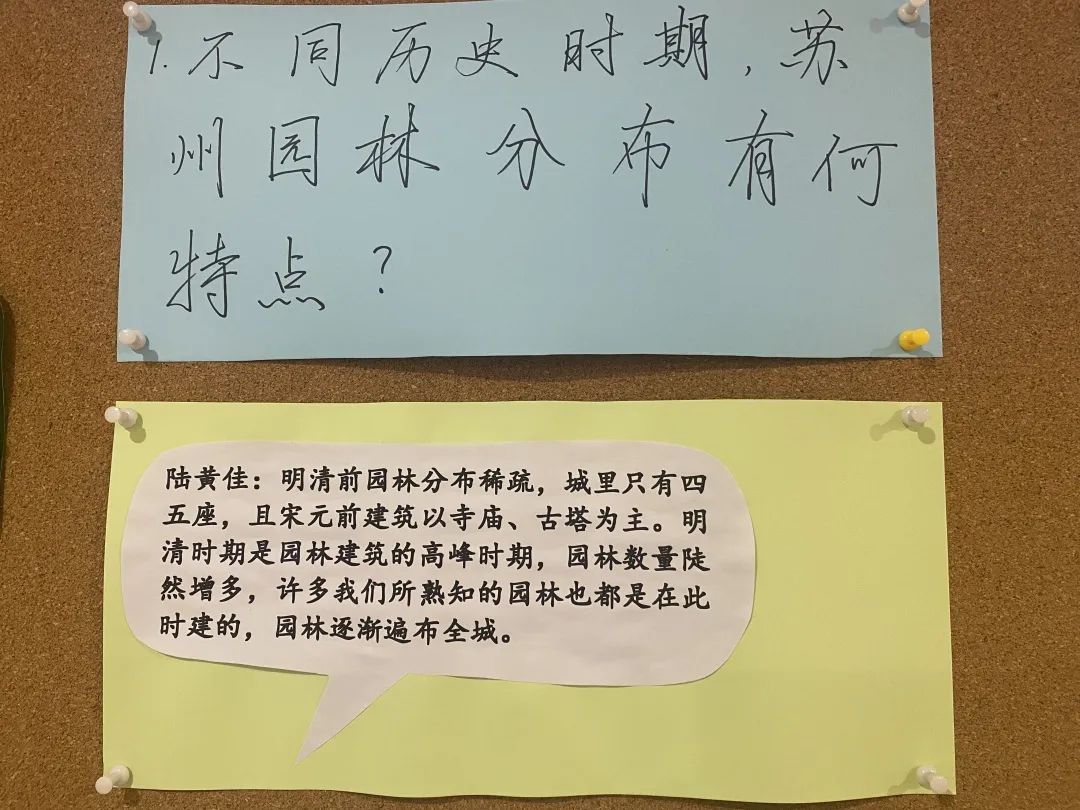 1.不同历史时期,苏
州园林分布有何
特点?
陆黄佳:明清前园林分布稀疏,城里只有四
五座,且宋元前建筑以寺庙、古塔为主。明
清时期是园林建筑的高峰时期,园林数量陡
然增多,许多我们所熟知的园林也都是在此
时建的,园林逐渐遍布全城。